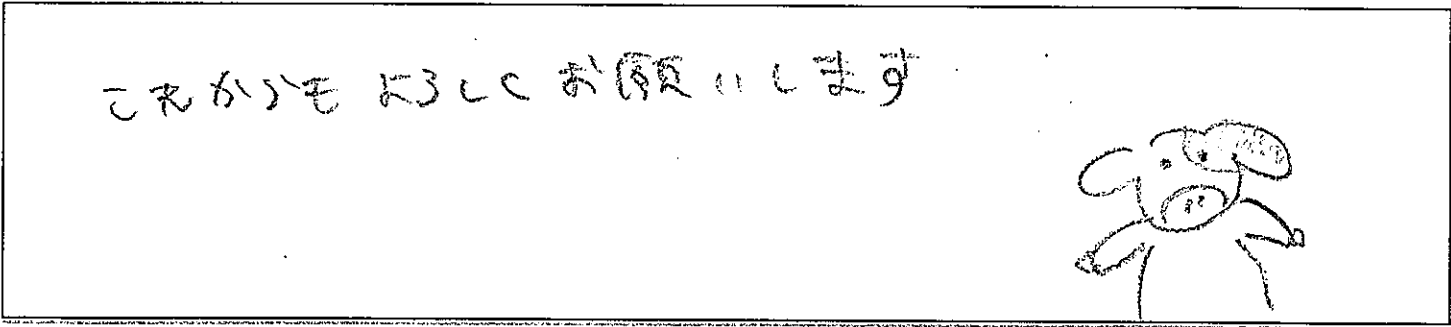 これからもよろしくお願いします